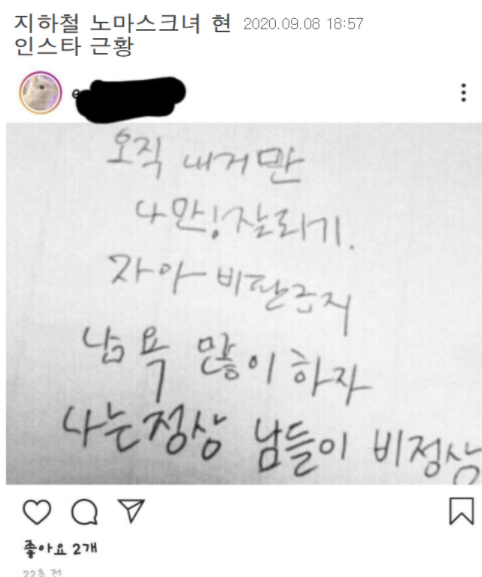 지하철 노마스크녀 현 2020.09.08 18:57
인스타 근황
오직 내거만
나만! 잘되기.
자아비판금지
남욕 많이하자
나는정상 남들이 비정상
좋아요 2개
22초 전